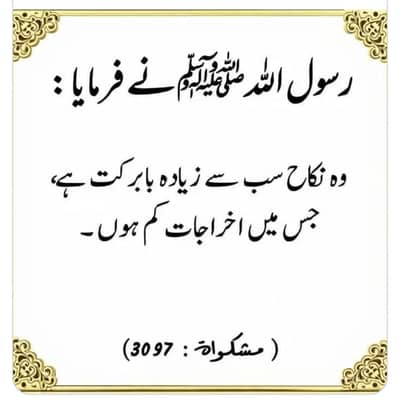 رسول اللہ ﷺ نے فرمایا :
وہ نکاح سب سے زیادہ بابرکت ہے،
جس میں اخراجات کم ہوں ۔
( مشکواۃ : 3097)